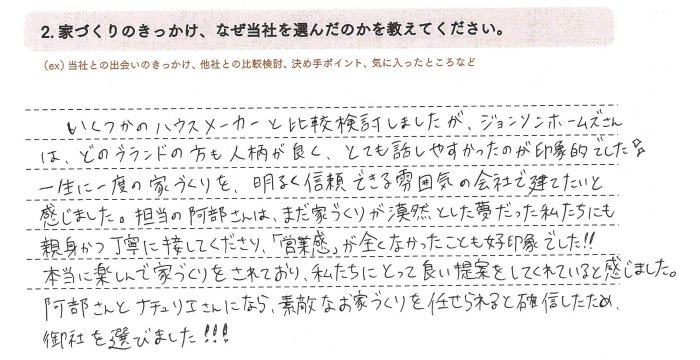 2. 家づくりのきっかけ、なぜ当社を選んだのかを教えてください。
（ex）当社との出会いのきっかけ、他社との比較検討、決め手ポイント、気に入ったところなど
いくつかのハウスメーカーと比較検討しましたが、ジョンソンホームズさん
は、どのブランドの方も人柄が良く、とても話しやすかったのが印象的でした。
一生に一度の家づくりを、明るく信頼できる雰囲気の会社で建てたいと
感じました。担当の阿部さんは、まだ家づくりが漠然とした夢だった私たちにも
親身かつ丁寧に接してくださり、「営業感」が全くなかったことも好印象でした!!
本当に楽しんで家づくりをされており、私たちにとって良い提案をしてくれていると感じました。
阿部さんとナチュリエさんになら、素敵なお家づくりを任せられると確信したため、
御社を選びました!!!